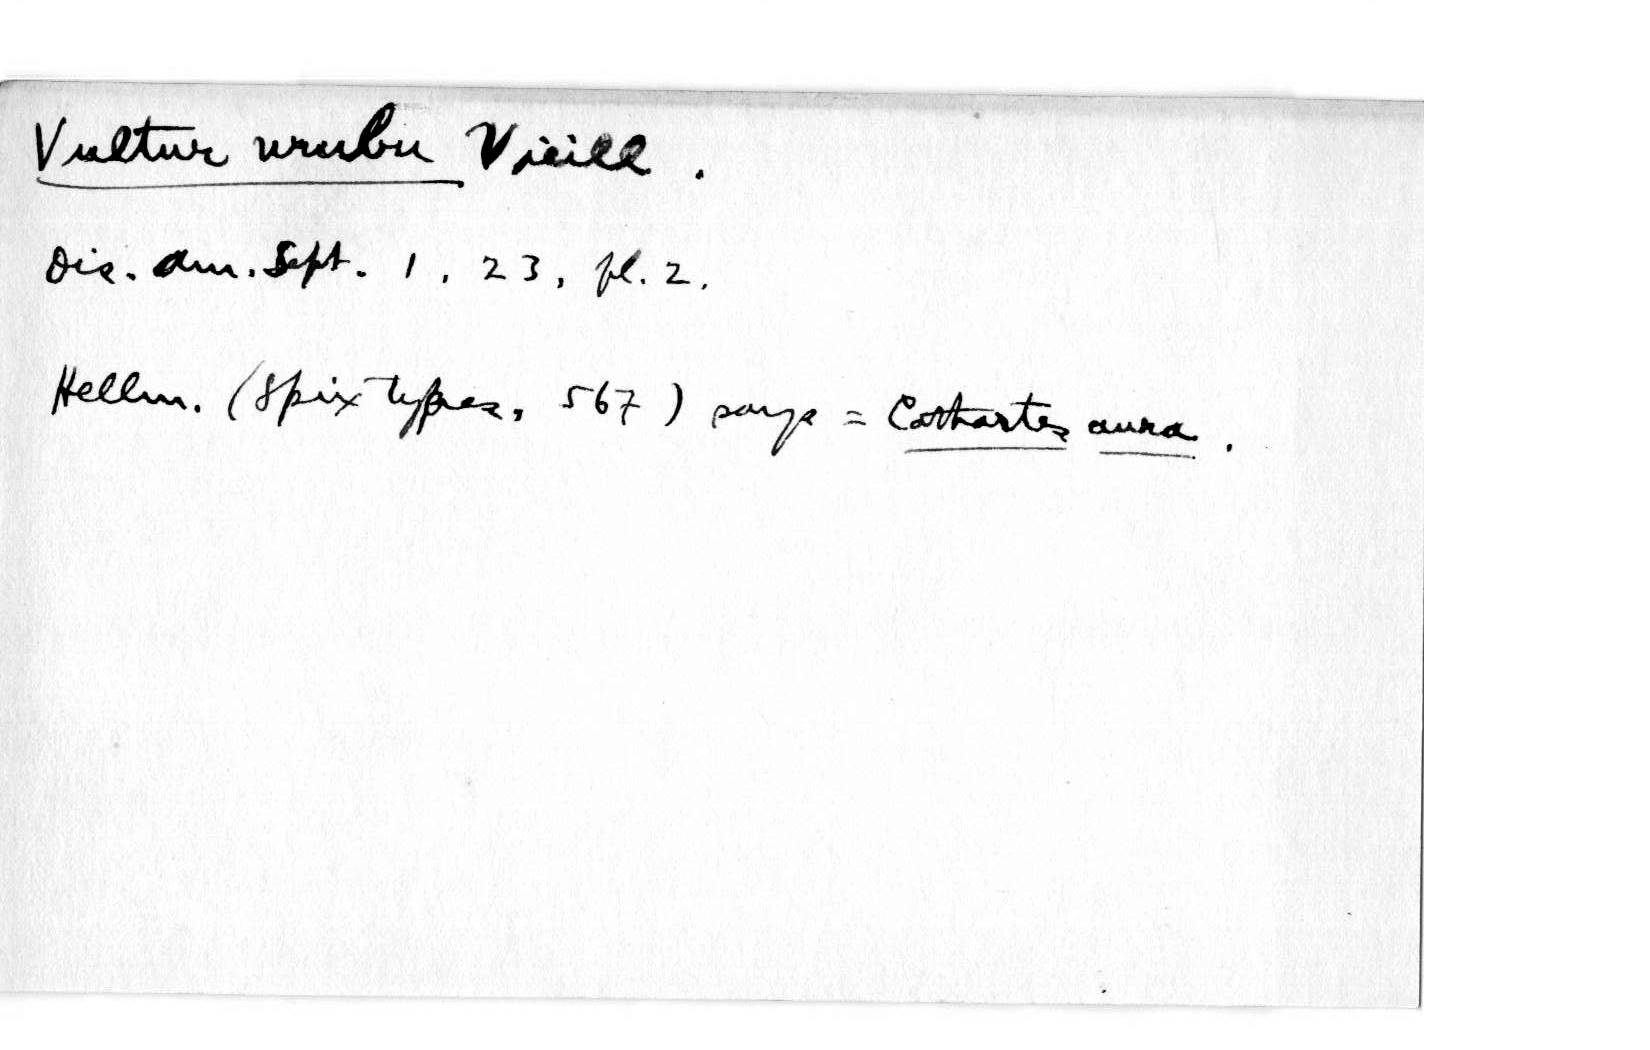 Vultur urubu Vieill.
Ois. Am. Sept. 1, 23, pl. 2.
Hellm. (Spix types, 567) says = Cathartes aura.